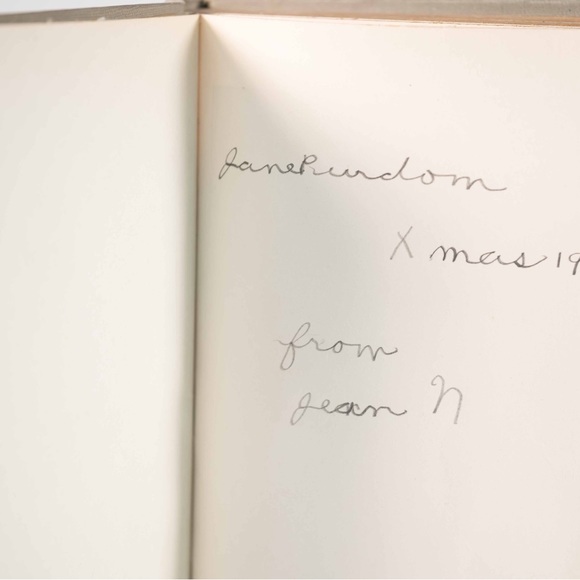 Jane Purdom
X mas 19
from
Jean N